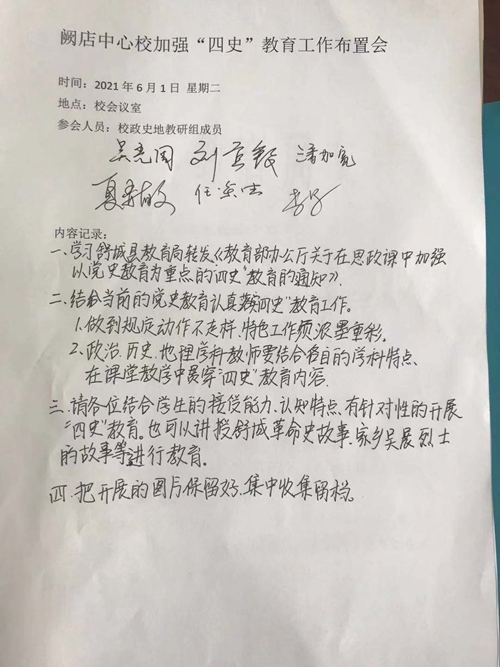 阙店中心校加强“四史”教育工作布置会
时间：2021 年 6 月 1 日 星期二
地点：校会议室
参会人员：校政史地教研组成员
内容记录：
一、学习舒城县教育局转发《教育部办公厅关于在思政课中加强
以党史教育为重点的“四史”教育的通知》.
二、结合当前的党史教育认真落实“四史”教育工作。
1.做到规定动作不走样.特色工作须浓墨重彩。
2.政治.历史.地理学科教师要结合各自的学科特点、
在课堂教学中贯穿“四史”教育内容.
三.请各位结合学生的接受能力、认知特点、有针对性的开展
“四史”教育。也可以讲授舒城革命史故事、家乡吴展烈士
的故事等进行教育。
四.把开展的图片保留好、集中收集留档。